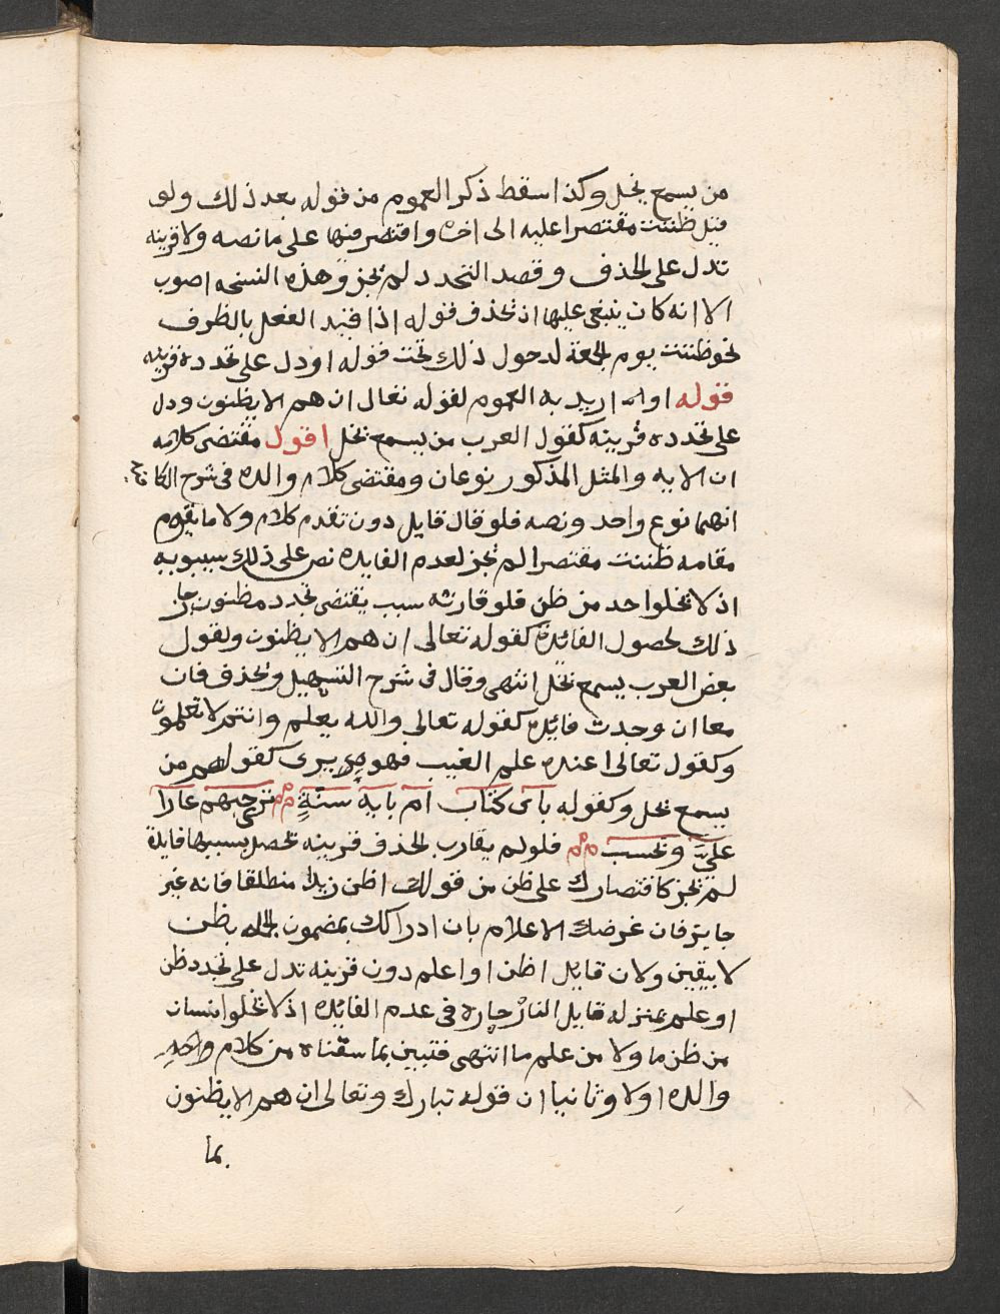 من يسمع يخل وكذا سقط ذكر العموم من قوله بعد ذلك ولو
قيل ظننت مقتصرا عليه الى اخره واقتصر فيها على ما نصه ولا قرينه
تدل على الحذف وقصد التجدد لم يجز وهذه النسخه اصوب
الا انه كان ينبغي عليها ان تحذف قوله اذا قيد الفعل بالظرف
نحو ظننت يوم الجمعة لدخول ذلك تحت قوله او دل على تجدده قرينه
قوله او اريد به العموم لقوله تعالى ان هم الا يظنون ودل
على تجدده قرينه كقول العرب من يسمع يخل اقول مقتضى كلامه
ان الايه والمثل المذكور نوعان ومقتضى كلام والده في شرح الكافية
انهما نوع واحد ونصه فلو قال قايل دون تقدم كلام ولا ما يقوم
مقامه ظننت مقتصرا لم يجز لعدم الفايده نص على ذلك سيبويه
اذ لا يخلوا احد من ظن فلو قارنه سبب يقتضي تجدد مظنون جاز
ذلك لحصول الفائدة كقوله تعالى ان هم الا يظنون ولقول
بعض العرب يسمع يخل انتهى وقال في شرح التسهيل ويحذفان
معا ان وجدت فائده كقوله تعالى والله يعلم وانتم لا تعلمون
وكقول تعالى اعنده علم الغيب فهو يرى كقولهم من
يسمع يخل وكقوله باى كتاب ام باية سنةٍ ترى حبهم عارا
عليّ وتحسب فلو لم يقارب الحذف قرينه تحصل بسببها فايدة
لم يجز كاقتصارك على ظن من قولك اظن زيدا منطلقا فانه غير
جايز فان غرضك الاعلام بان ادراكك بمضمون الجمله بظن
لا بيقين ولان قايل اظن او اعلم دون قرينه تدل على تجدد ظن
او علم بمنزله قايل النار حاره في عدم الفائده اذ لا يخلوا انسان
من ظن ما ولا من علم ما انتهى فتبين بما سقناه من كلام
والده اولا وثانيا ان قوله تبارك وتعالى ان هم الا يظنون
بما